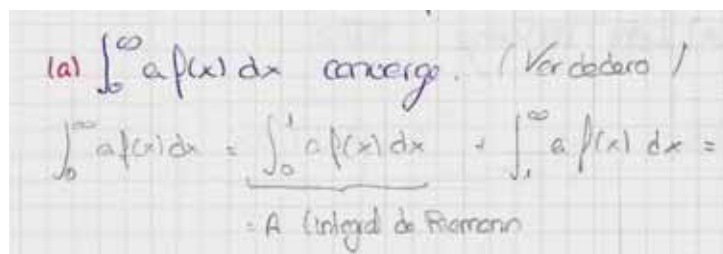 (a) ∫₀^∞ a f(x) dx converge. (Verdadero)
∫₀^∞ a f(x) dx = ∫₀¹ a f(x) dx + ∫₁^∞ a f(x) dx =
= A (integral de Riemann